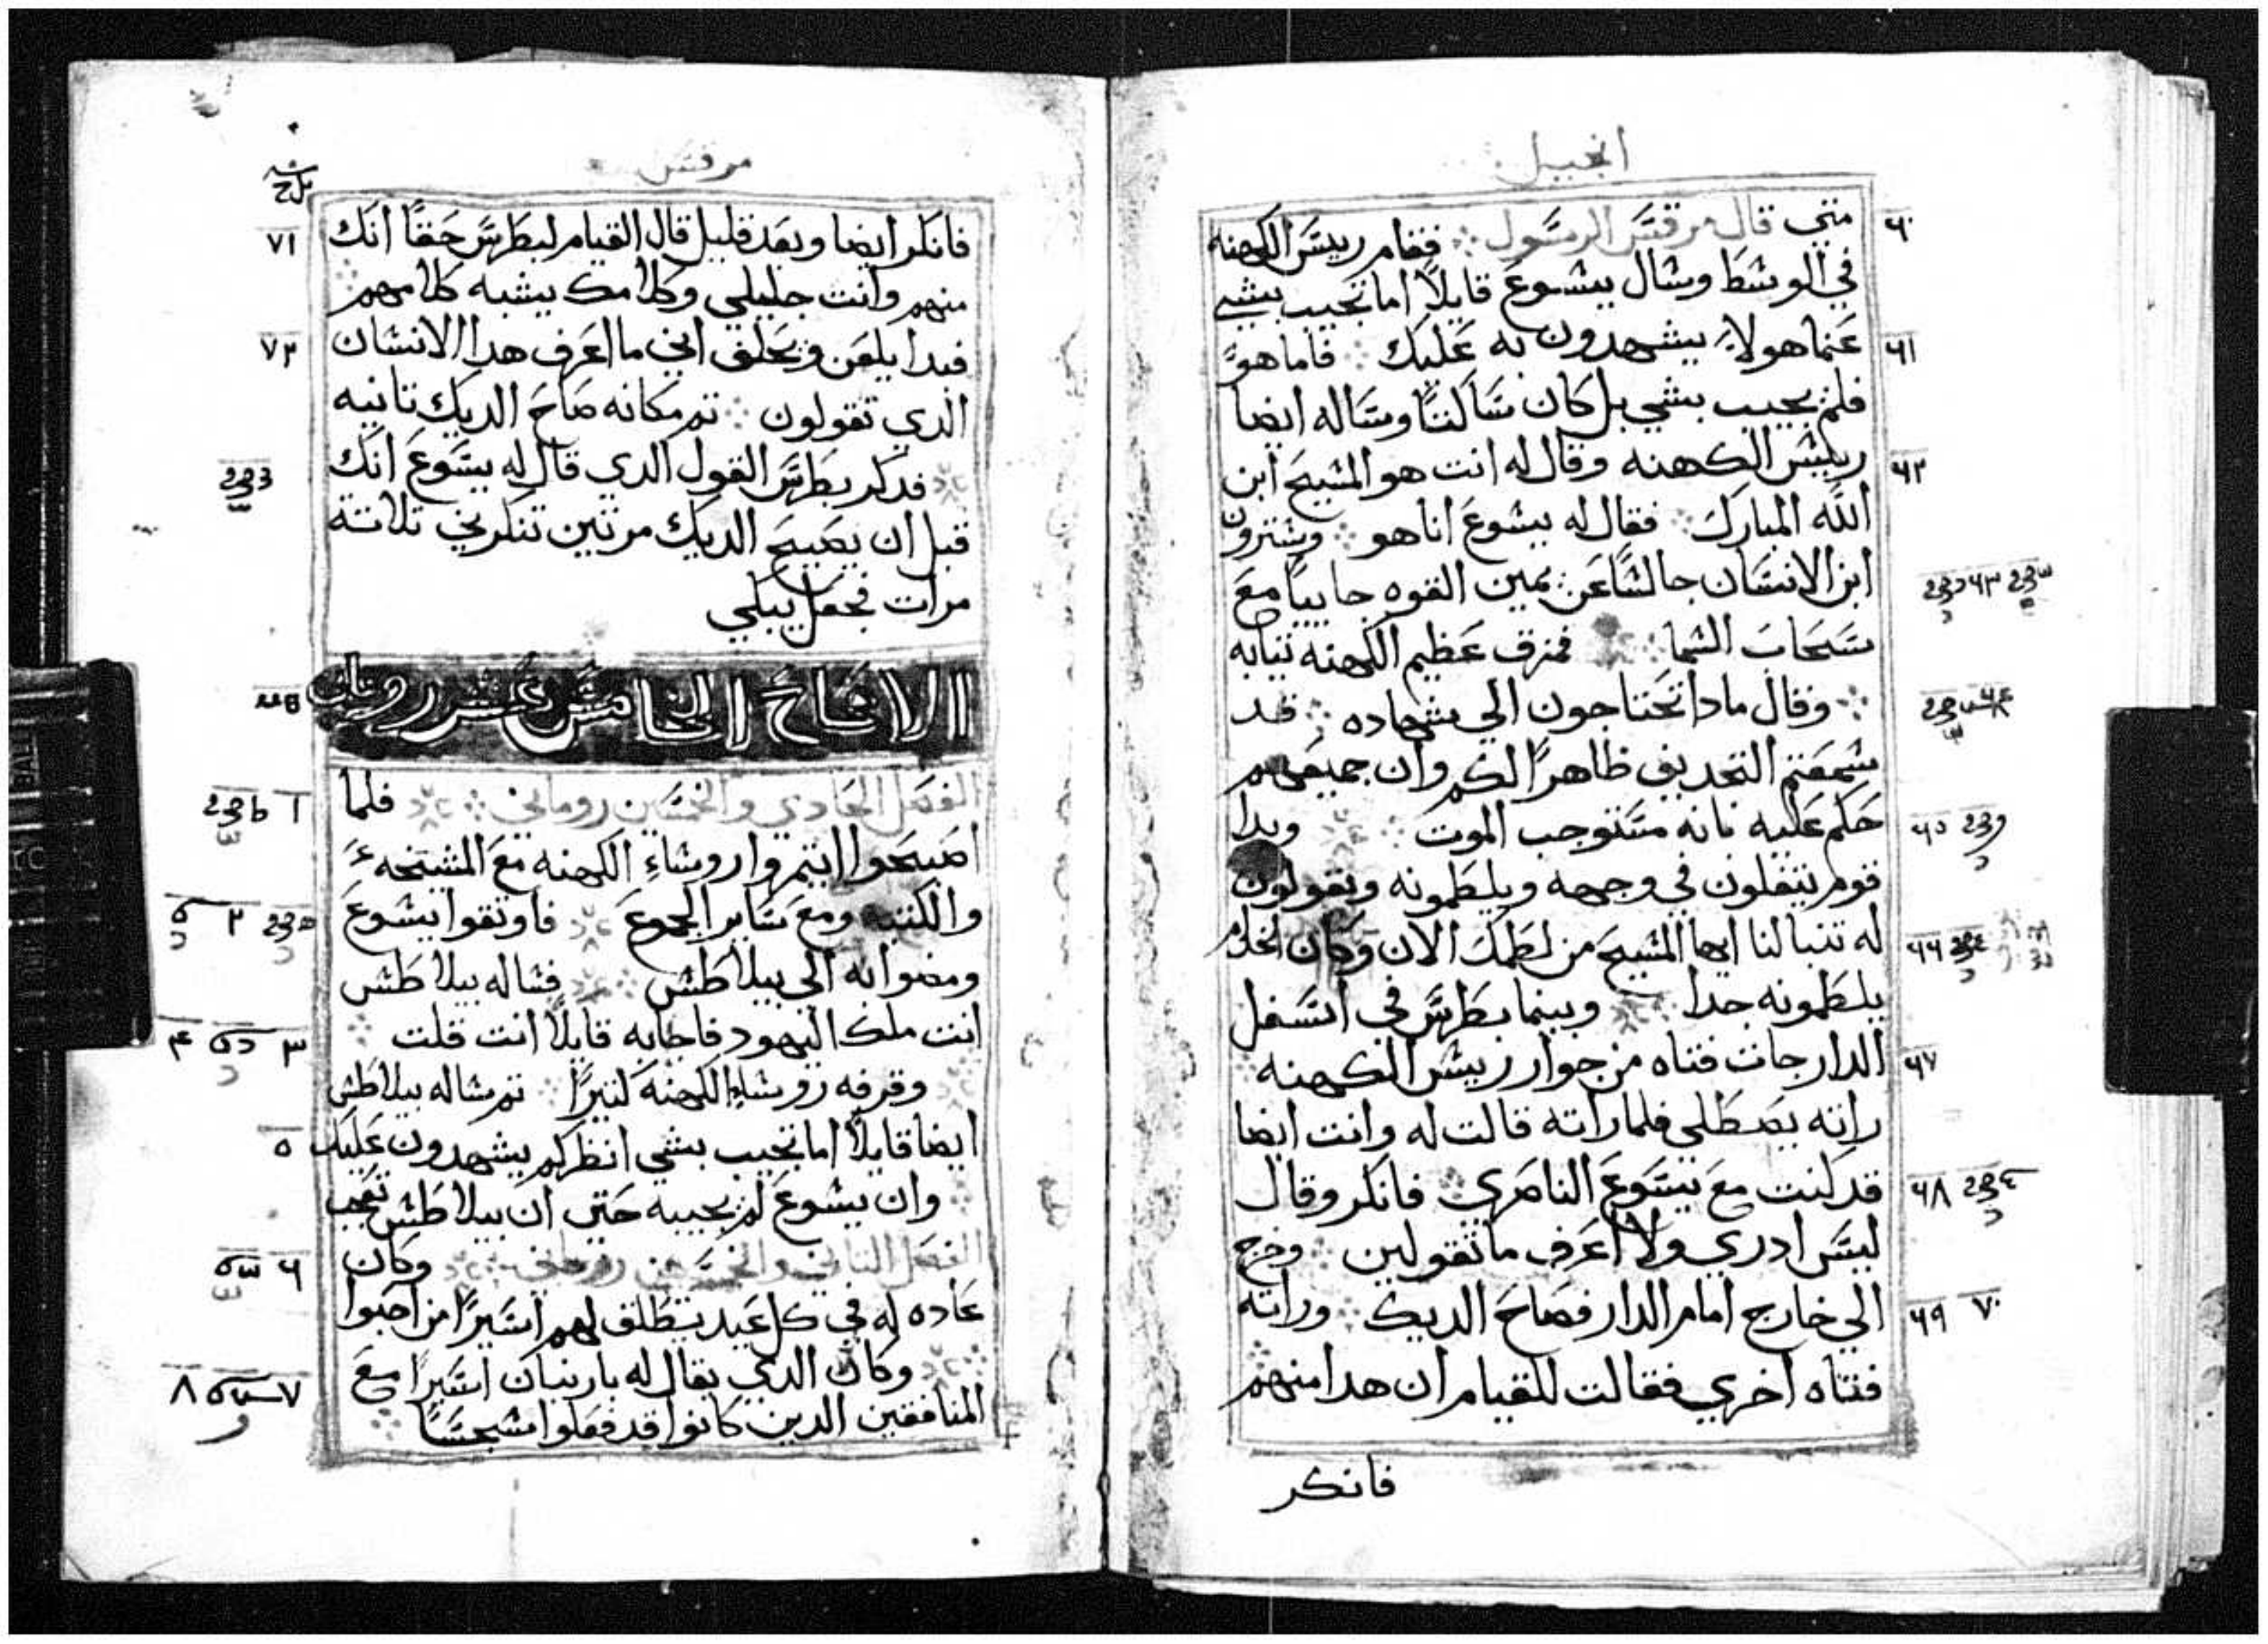 انجيل
متي قال مرقس الرسول فقام رييس الكهنه
في الوسط وسال يسوع قايلاً اما تجيب بشي
عنما هولاء يشهدون به عليك فاما هو
فلم يجيب بشي بل كان ساكتاً وساله ايضا
رييس الكهنه وقال له انت هو المسيح ابن
الله المبارك فقال له يسوع انا هو وسترون
ابن الانسان جالساً عن يمين القوه جاييا مع
سحاب السما فمزق عظيم الكهنه تيابه
وقال مادا تحتاجون الي شهاده قد
سمعتم التجديف ظاهراً لكم وان جميعهم
حكم عليه بانه مستوجب الموت وبدا
قوم يتفلون في وجهه ويلطمونه ويقولون
له تنبا لنا ايها المسيح من لطمك الان وكان الخدام
يلطمونه جدا وبينما بطرس في اسفل
الدار جات فتاه من جوار رييس الكهنه
راته يصطلي فلما راته قالت له وانت ايضا
قد كنت مع يسوع الناصري فانكر وقال
ليس ادري ولا اعرف ما تقولين وخرج
الي خارج امام الدار فصاح الديك وراته
فتاه اخري فقالت للقيام ان هدا منهم
فانكر
٦٠
٦١
٦٢
٦٣
٦٤
٦٥
٦٦
٦٧
٦٨
٦٩ ٧٠
مرقس
فانكر ايضا وبعد قليل قال القيام لبطرس حقاً انك
منهم وانت جليلي وكلامك يشبه كلامهم
فبدا يلعن ويحلف اني ما اعرف هدا الانسان
الدي تقولون تم مكانه صاح الديك تانيه
فدكر بطرس القول الدي قال له يسوع انك
قبل ان يصيح الديك مرتين تنكرني تلاتة
مرات فجعل يبكي
الاصحاح الخامس عشر روماني
الفصل الحادي والخمسين روماني فلما
اصبحوا ايتمروا روساء الكهنه مع المشيخه
والكتبه ومع ساير الجموع فاوتقوا يسوع
ومضوا به الي بيلاطس فساله بيلاطس
انت ملك اليهود فاجابه قايلاً انت قلت
وقرفه روساء الكهنه كتيراً تم ساله بيلاطس
ايضا قايلاً اما تجيب بشي انظر كم يشهدون عليك
وان يسوع لم يجيبه حتي ان بيلاطس تعجب
الفصل التاني والخمسين روماني وكان
عاده له في كل عيد يطلق لهم اسيراً من احبوا
وكان الدي يقال له باربنان اسيراً مع
المنافقين الدين كانوا قد فعلوا سجساً
٧١
٧٢
١
٢
٣
٤
٥
٦
٧
٨